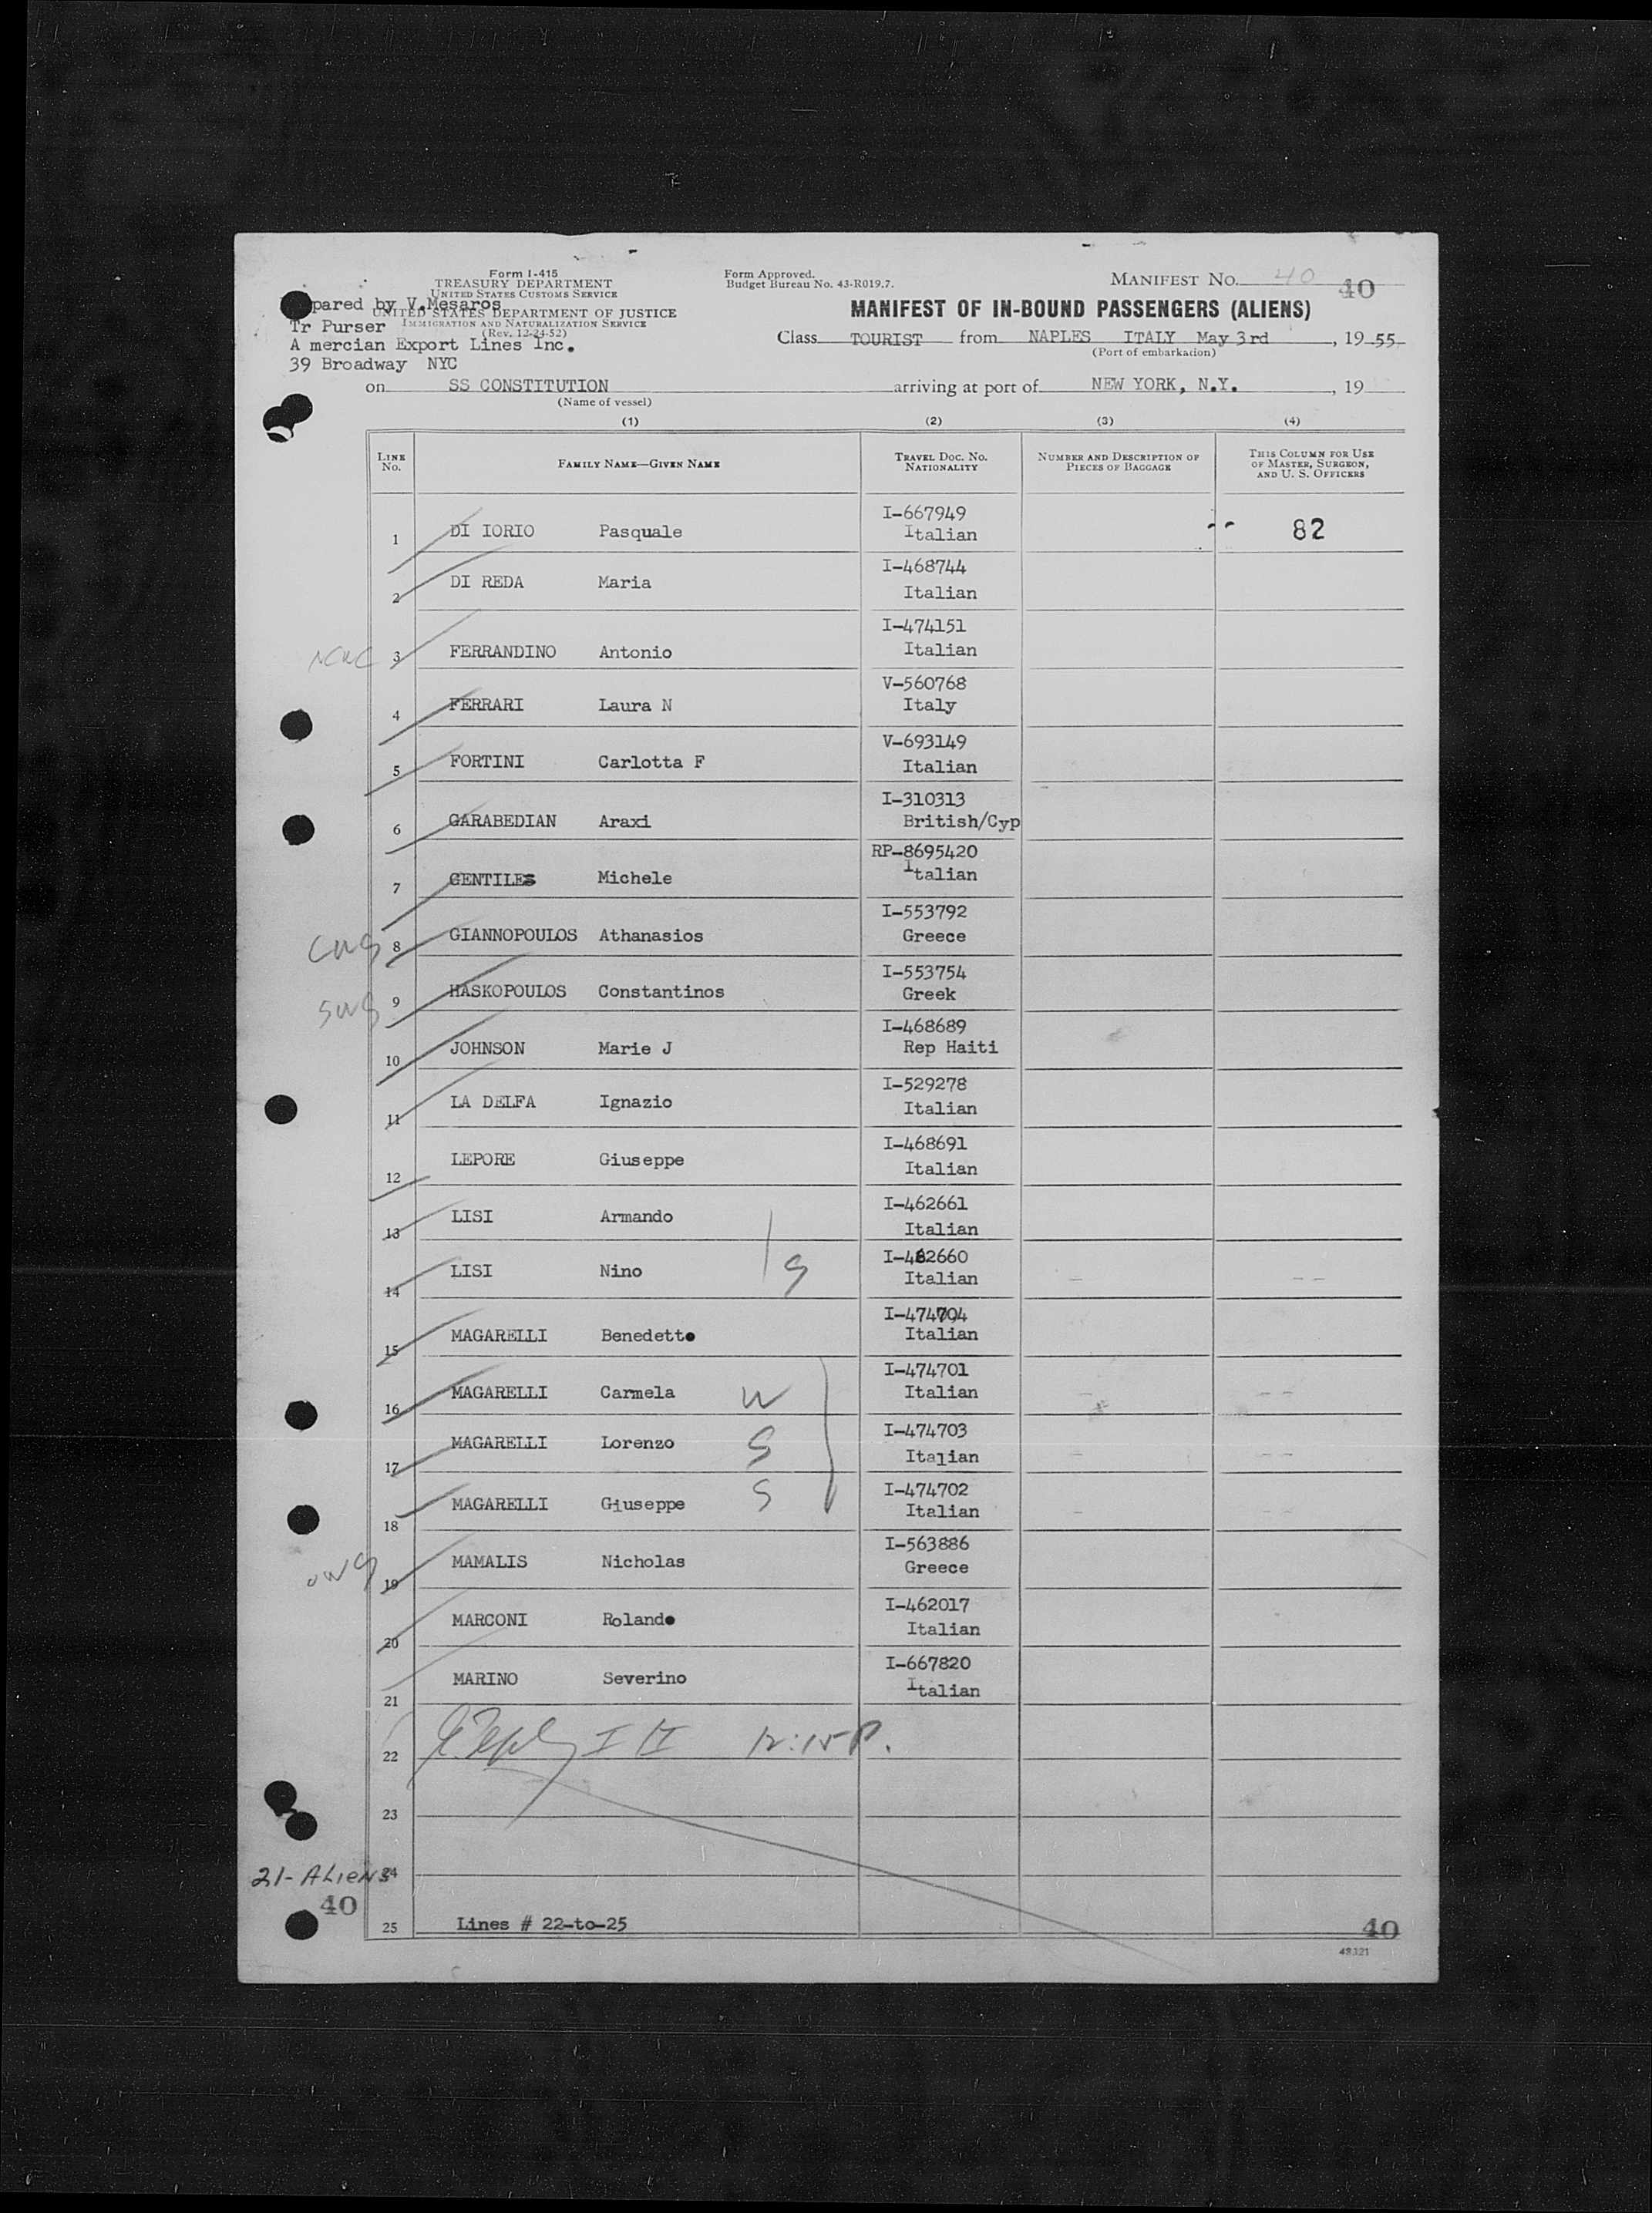 Form I-415
TREASURY DEPARTMENT
UNITED STATES CUSTOMS SERVICE
UNITED STATES DEPARTMENT OF JUSTICE
IMMIGRATION AND NATURALIZATION SERVICE
(Rev. 12-24-52)
pared by V.Mesaros
Tr Purser
A mercian Export Lines Inc.
39 Broadway NYC
Form Approved.
Budget Bureau No. 43-R019.7.
MANIFEST NO. 40 40
MANIFEST OF IN-BOUND PASSENGERS (ALIENS)
Class TOURIST from NAPLES ITALY May 3rd, 19 55
(Port of embarkation)
on SS CONSTITUTION arriving at port of NEW YORK, N.Y., 19
(Name of vessel)
(1) (2) (3) (4)
LINE NO. FAMILY NAME—GIVEN NAME TRAVEL DOC. NO. NATIONALITY NUMBER AND DESCRIPTION OF PIECES OF BAGGAGE THIS COLUMN FOR USE OF MASTER, SURGEON, AND U. S. OFFICERS
1 DI IORIO Pasquale I-667949 Italian 82
2 DI REDA Maria I-468744 Italian
3 FERRANDINO Antonio I-474151 Italian
4 FERRARI Laura N V-560768 Italy
5 FORTINI Carlotta F V-693149 Italian
6 GARABEDIAN Araxi I-310313 British/Cyp
7 GENTILES Michele RP-8695420 Italian
8 GIANNOPOULOS Athanasios I-553792 Greece
9 HASKOPOULOS Constantinos I-553754 Greek
10 JOHNSON Marie J I-468689 Rep Haiti
11 LA DELFA Ignazio I-529278 Italian
12 LEPORE Giuseppe I-468691 Italian
13 LISI Armando I-462661 Italian
14 LISI Nino S I-462660 Italian
15 MAGARELLI Benedetto I-474704 Italian
16 MAGARELLI Carmela W I-474701 Italian
17 MAGARELLI Lorenzo S I-474703 Italian
18 MAGARELLI Giuseppe S I-474702 Italian
19 MAMALIS Nicholas I-563886 Greece
20 MARCONI Rolando I-462017 Italian
21 MARINO Severino I-667820 Italian
22 12:15 P.
23
21-ALiENS 24
40
25 Lines # 22-to-25
40
48321